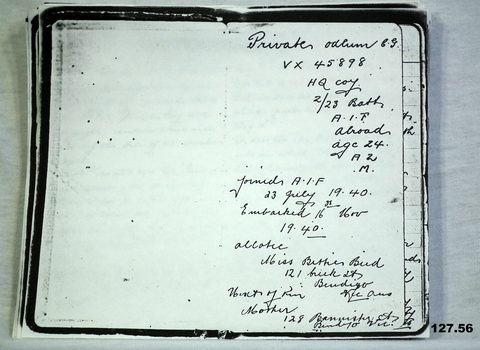 Private Odlum C.G.
VX 45898
HQ coy
2/23 Batt
A.I.F.
abroad
age 24.
A2
M.
joined A.I.F
23 July 19.40.
Embarked 16 Nov
19.40.
allotee
Miss Bird
121 St
Bendigo
Next of Kin Vic Aus
Mother
129 St
Vic.
127.56